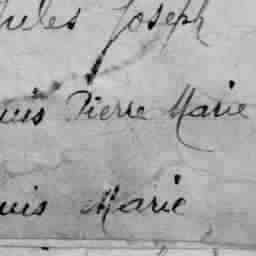 Jules Joseph
uis Pierre Marie
uis Marie